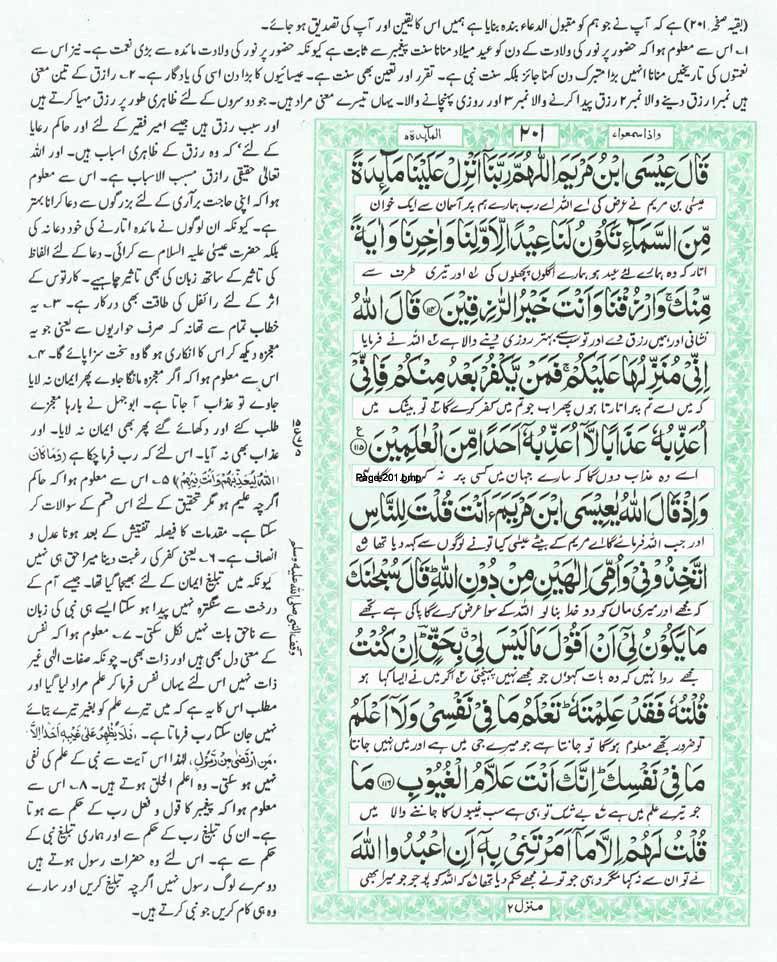 (بقیہ صفحہ ۲۰۱) ہے کہ آپ نے جو ہم کو مقبول الدعاء بندہ بنایا ہے ہمیں اس کا یقین اور آپ کی تصدیق ہو جائے۔
۱۔ اس سے معلوم ہوا کہ حضور پر نور کی ولادت کے دن کو عید میلاد منانا سنت پیغمبر سے ثابت ہے کیونکہ حضور پر نور کی ولادت مائدہ سے بڑی نعمت ہے۔ نیز اس سے
نعمتوں کی تاریخیں منانا انہیں بڑا متبرک دن کہنا جائز بلکہ سنت نبی ہے۔ تقرر اور تعین بھی سنت ہے۔ عیسائیوں کا بڑا دن اسی کی یادگار ہے۔ ۲۔ رازق کے تین معنی
ہیں نمبر۱ رزق دینے والا نمبر۲ رزق پیدا کرنے والا نمبر۳ اور روزی پہنچانے والا۔ یہاں تیسرے معنی مراد ہیں۔ جو دوسروں کے لئے ظاہری طور پر رزق مہیا کرتے ہیں
واذا سمعوا ۷
۲۰۱
المآىِٕدة ۵
قَالَ عِیْسَى ابْنُ مَرْیَمَ اللّٰهُمَّ رَبَّنَاۤ اَنْزِلْ عَلَیْنَا مَآىِٕدَةً
عیسیٰ بن مریم نے عرض کی اے اللہ اے رب ہمارے ہم پر آسمان سے ایک خوان
مِّنَ السَّمَآءِ تَكُوْنُ لَنَا عِیْدًا لِّاَوَّلِنَا وَ اٰخِرِنَا وَ اٰیَةً
اتار کہ وہ ہمارے لئے عید ہو ہمارے اگلوں پچھلوں کی ۱ اور تیری طرف سے
مِّنْكَ ۚ وَ ارْزُقْنَا وَ اَنْتَ خَیْرُ الرّٰزِقِیْنَ ۝۱۱۴ قَالَ اللّٰهُ
نشانی اور ہمیں رزق دے اور تو سب سے بہتر روزی دینے والا ہے ۲ اللہ نے فرمایا
اِنِّیْ مُنَزِّلُهَا عَلَیْكُمْ ۚ فَمَنْ یَّكْفُرْ بَعْدُ مِنْكُمْ فَاِنِّیْۤ
کہ میں اسے تم پر اتارتا ہوں پھر اب جو تم میں کفر کرے گا ۳ تو بیشک میں
اُعَذِّبُهٗ عَذَابًا لَّاۤ اُعَذِّبُهٗۤ اَحَدًا مِّنَ الْعٰلَمِیْنَ ۝۱۱۵
اسے وہ عذاب دوں گا کہ سارے جہان میں کسی پر نہ کروں گا
Page-201.bmp
وَ اِذْ قَالَ اللّٰهُ یٰعِیْسَى ابْنَ مَرْیَمَ ءَاَنْتَ قُلْتَ لِلنَّاسِ
اور جب اللہ فرمائے گا اے مریم کے بیٹے عیسیٰ کیا تو نے لوگوں سے کہہ دیا تھا ۵
اتَّخِذُوْنِیْ وَ اُمِّیَ اِلٰهَیْنِ مِنْ دُوْنِ اللّٰهِ ؕ قَالَ سُبْحٰنَكَ
کہ مجھے اور میری ماں کو دو خدا بنا لو اللہ کے سوا عرض کرے گا پاکی ہے تجھے
مَا یَكُوْنُ لِیْۤ اَنْ اَقُوْلَ مَا لَیْسَ لِیْ ۗ بِحَقٍّ ؕ اِنْ كُنْتُ
مجھے روا نہیں کہ وہ بات کہوں جو مجھے نہیں پہنچتی ۶ اگر میں نے ایسا کہا ہو
قُلْتُهٗ فَقَدْ عَلِمْتَهٗ ؕ تَعْلَمُ مَا فِیْ نَفْسِیْ وَ لَاۤ اَعْلَمُ
تو ضرور تجھے معلوم ہو گا تو جانتا ہے جو میرے جی میں ہے اور میں نہیں جانتا
مَا فِیْ نَفْسِكَ ؕ اِنَّكَ اَنْتَ عَلَّامُ الْغُیُوْبِ ۝۱۱۶ مَا
جو تیرے علم میں ہے ۷ بے شک تو ہی ہے سب غیبوں کا جاننے والا میں
قُلْتُ لَهُمْ اِلَّا مَاۤ اَمَرْتَنِیْ بِهٖۤ اَنِ اعْبُدُوا اللّٰهَ
نے تو ان سے نہ کہا مگر وہی جو تو نے مجھے حکم دیا تھا ۸ کہ اللہ کو پوجو جو میرا بھی
منزل ۲
وقف النبی صلی اللہ علیہ وسلم
اور سبب رزق ہیں جیسے امیر فقیر کے لئے اور حاکم رعایا
کے لئے کہ وہ رزق کے ظاہری اسباب ہیں۔ اور اللہ
تعالیٰ حقیقی رازق مسبب الاسباب ہے۔ اس سے معلوم
ہوا کہ اپنی حاجت برآری کے لئے بزرگوں سے دعا کرانا بہتر
ہے۔ کیونکہ ان لوگوں نے مائدہ اتارنے کی خود دعا نہ کی
بلکہ حضرت عیسیٰ علیہ السلام سے کرائی۔ دعا کے لئے الفاظ
کی تاثیر کے ساتھ زبان کی بھی تاثیر چاہیے۔ کارتوس کے
اثر کے لئے رائفل کی طاقت بھی درکار ہے۔ ۳۔ یہ
خطاب تمام سے تھا نہ کہ صرف حواریوں سے یعنی جو یہ
معجزہ دیکھ کر اس کا انکاری ہو گا وہ سخت سزا پائے گا۔ ۴۔
اس سے معلوم ہوا کہ اگر معجزہ مانگا جاوے پھر ایمان نہ لایا
جاوے تو عذاب آ جاتا ہے۔ ابوجہل نے بارہا معجزے
طلب کئے اور دکھائے گئے پھر بھی ایمان نہ لایا۔ اور
عذاب بھی نہ آیا۔ اس لئے کہ رب فرما چکا ہے (وَمَا كَانَ
اللّٰهُ لِيُعَذِّبَهُمْ وَاَنْتَ فِيْهِمْ) ۵۔ اس سے معلوم ہوا کہ حاکم
اگرچہ علیم ہو مگر تحقیق کے لئے اس قسم کے سوالات کر
سکتا ہے۔ مقدمات کا فیصلہ تفتیش کے بعد ہونا عدل و
انصاف ہے۔ ۶۔ یعنی کفر کی رغبت دینا میرا حق ہی نہیں
کیونکہ میں تبلیغ ایمان کے لئے بھیجا گیا تھا۔ جیسے آم کے
درخت سے سنگترہ نہیں پیدا ہو سکتا ایسے ہی نبی کی زبان
سے ناحق بات نہیں نکل سکتی۔ ۷۔ معلوم ہوا کہ نفس
کے معنی دل بھی ہیں اور ذات بھی۔ چونکہ صفات الٰہی غیر
ذات نہیں اس لئے یہاں نفس فرما کر علم مراد لیا گیا اور
مطلب اس کا یہ ہے کہ میں تیرے علم کو بغیر تیرے بتائے
نہیں جان سکتا رب فرماتا ہے۔ فَلَا يُظْهِرُ عَلٰى غَيْبِهٖۤ اَحَدًا اِلَّا
مَنِ ارْتَضٰى مِنْ رَّسُوْلٍ۔ لہٰذا اس آیت سے نبی کے علم کی نفی
نہیں ہو سکتی۔ وہ اعلم الخلق ہوتے ہیں۔ ۸۔ اس سے
معلوم ہوا کہ پیغمبر کا قول و فعل رب کے حکم سے ہوتا
ہے۔ ان کی تبلیغ رب کے حکم سے اور ہماری تبلیغ نبی کے
حکم سے ہے۔ اس لئے وہ حضرات رسول ہوتے ہیں
دوسرے لوگ رسول نہیں اگرچہ تبلیغ کریں اور سارے
وہ ہی کام کریں جو نبی کرتے ہیں۔